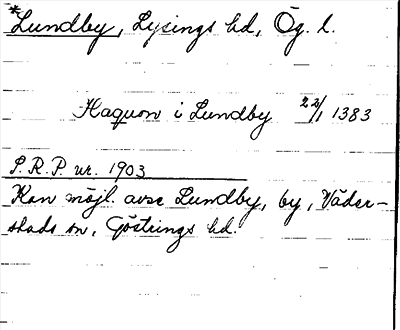 *Lundby, Lysings hd, Ög. l.
Haquon i Lundby 22/1 1383
S.R.P. nr. 1903
Kan möjl. avse Lundby, by, Väder-
stads sn, Göstrings hd.